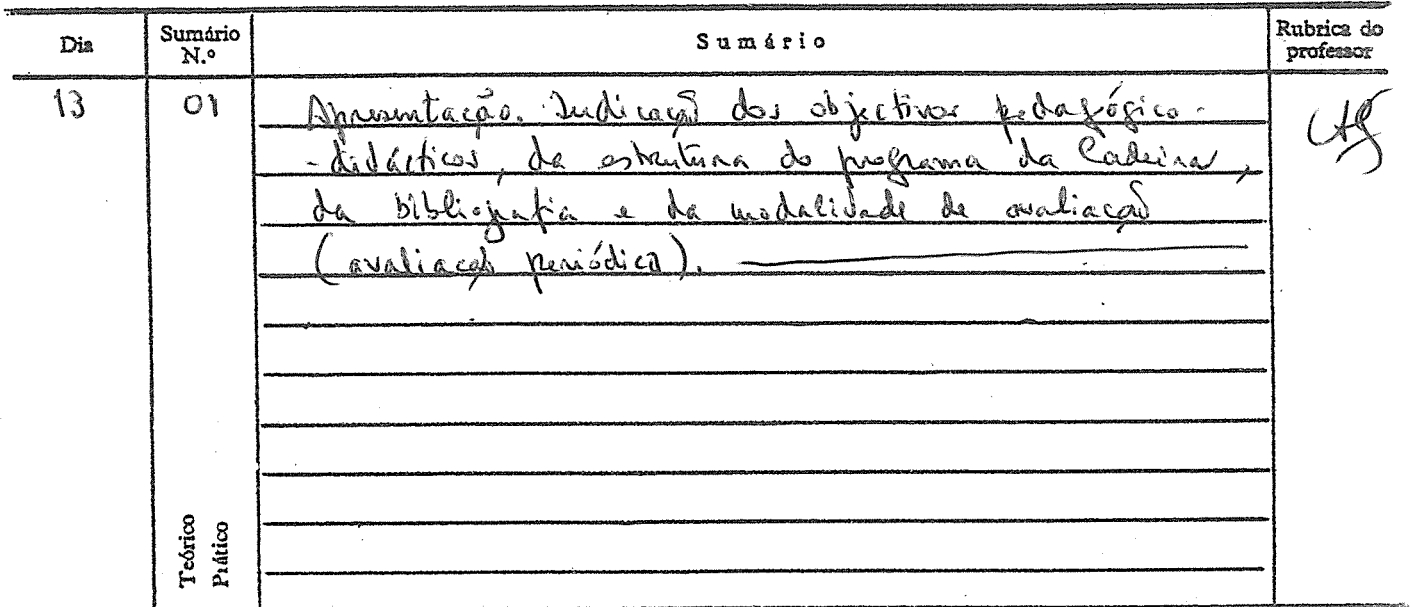 Dia Sumário N.º Sumário Rubrica do professor
13 01 Apresentação. Indicação dos objectivos pedagógico-
-didácticos, da estrutura do programa da Cadeira,
da bibliografia e da modalidade de avaliação
(avaliação periódica).
Teórico
Prático